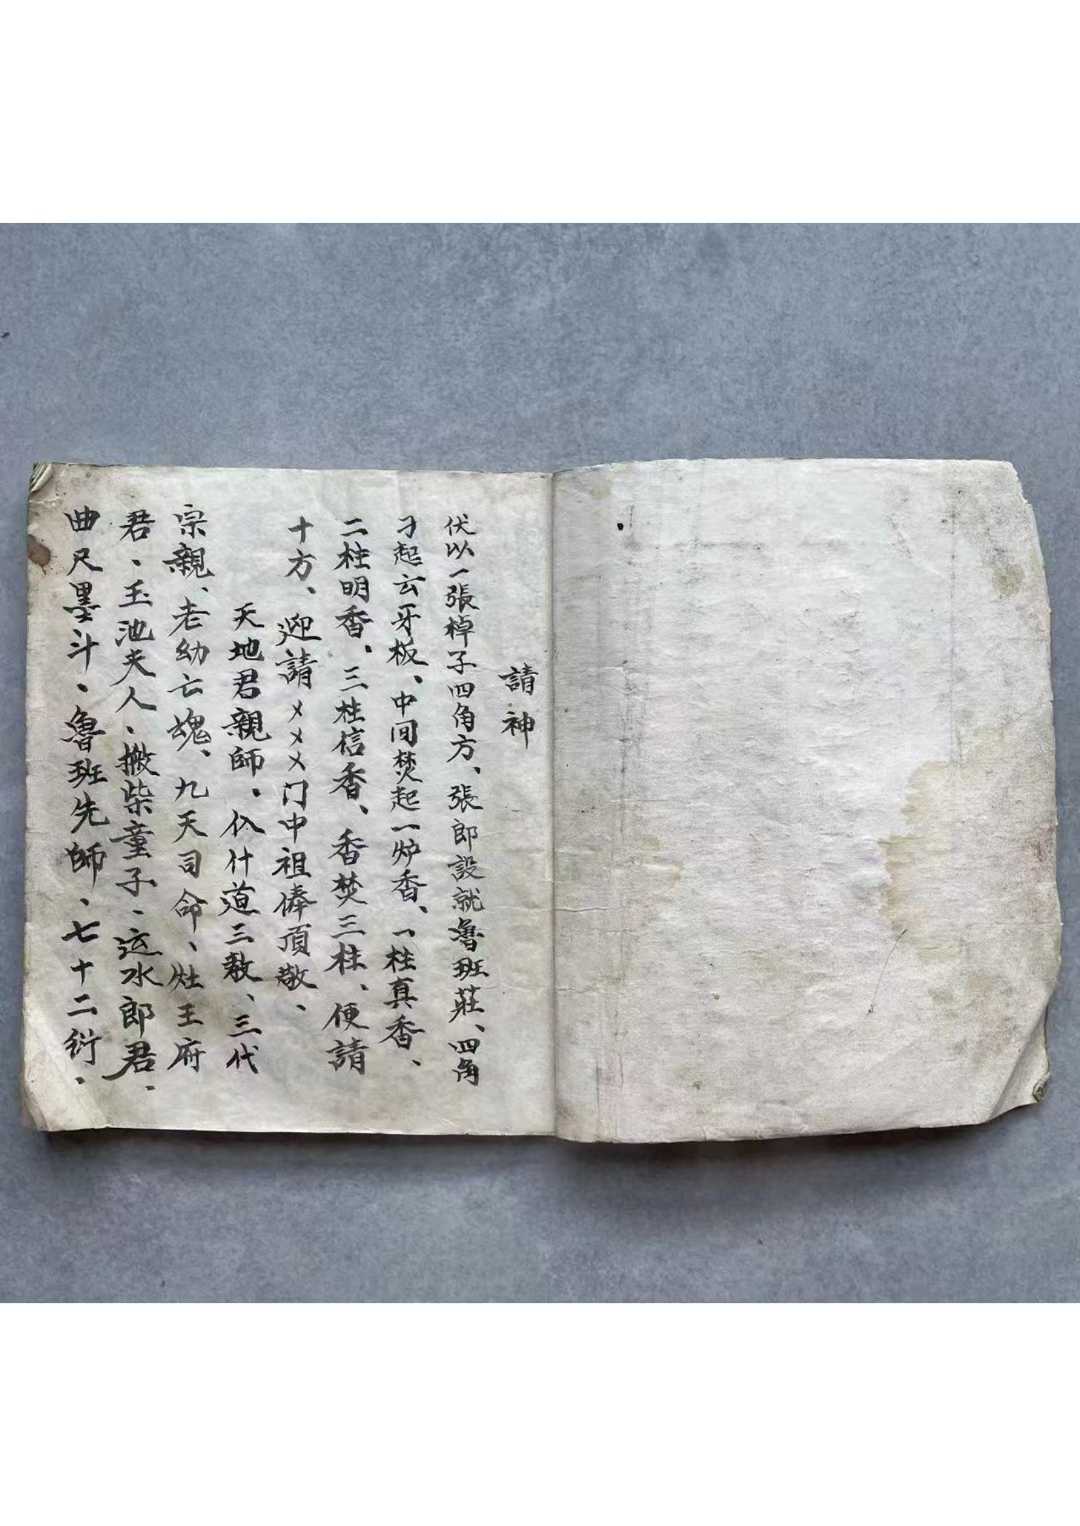 請神
伏以一張棹子四角方、張郎設就魯班莊、四角
刁起云牙板、中间焚起一炉香、一柱真香、
二柱明香、三柱信香、香焚三柱、便請
十方、迎請〤〤〤门中祖俸頂敬、
天地君親師、仈什道三教、三代
宗親、老幼亡魂、九天司命、灶王府
君、玉池夫人、搬柴童子、运水郎君、
曲尺墨斗、魯班先師、七十二衍、